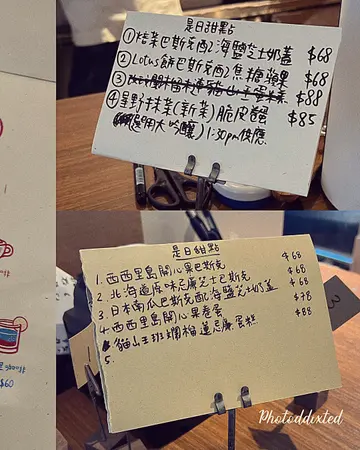 是日甜點
①紫菜巴斯克配海鹽芝士奶蓋 $68
②Lotus餅巴斯克配焦糖蘋果 $68
③ $88
④星野抹茶(新茶)脆皮 $85
1:30pm後應
是日甜點
1. 西西里島開心果巴斯克 $68
2. 北海道原味忌廉芝士巴斯克 $68
3. 日本南瓜巴斯克配海鹽芝士奶蓋 $68
4. 西西里島開心果卷蛋 $78
貓山王班斕榴槤忌廉蛋糕 $88
5.
3
$60
Photoddixted